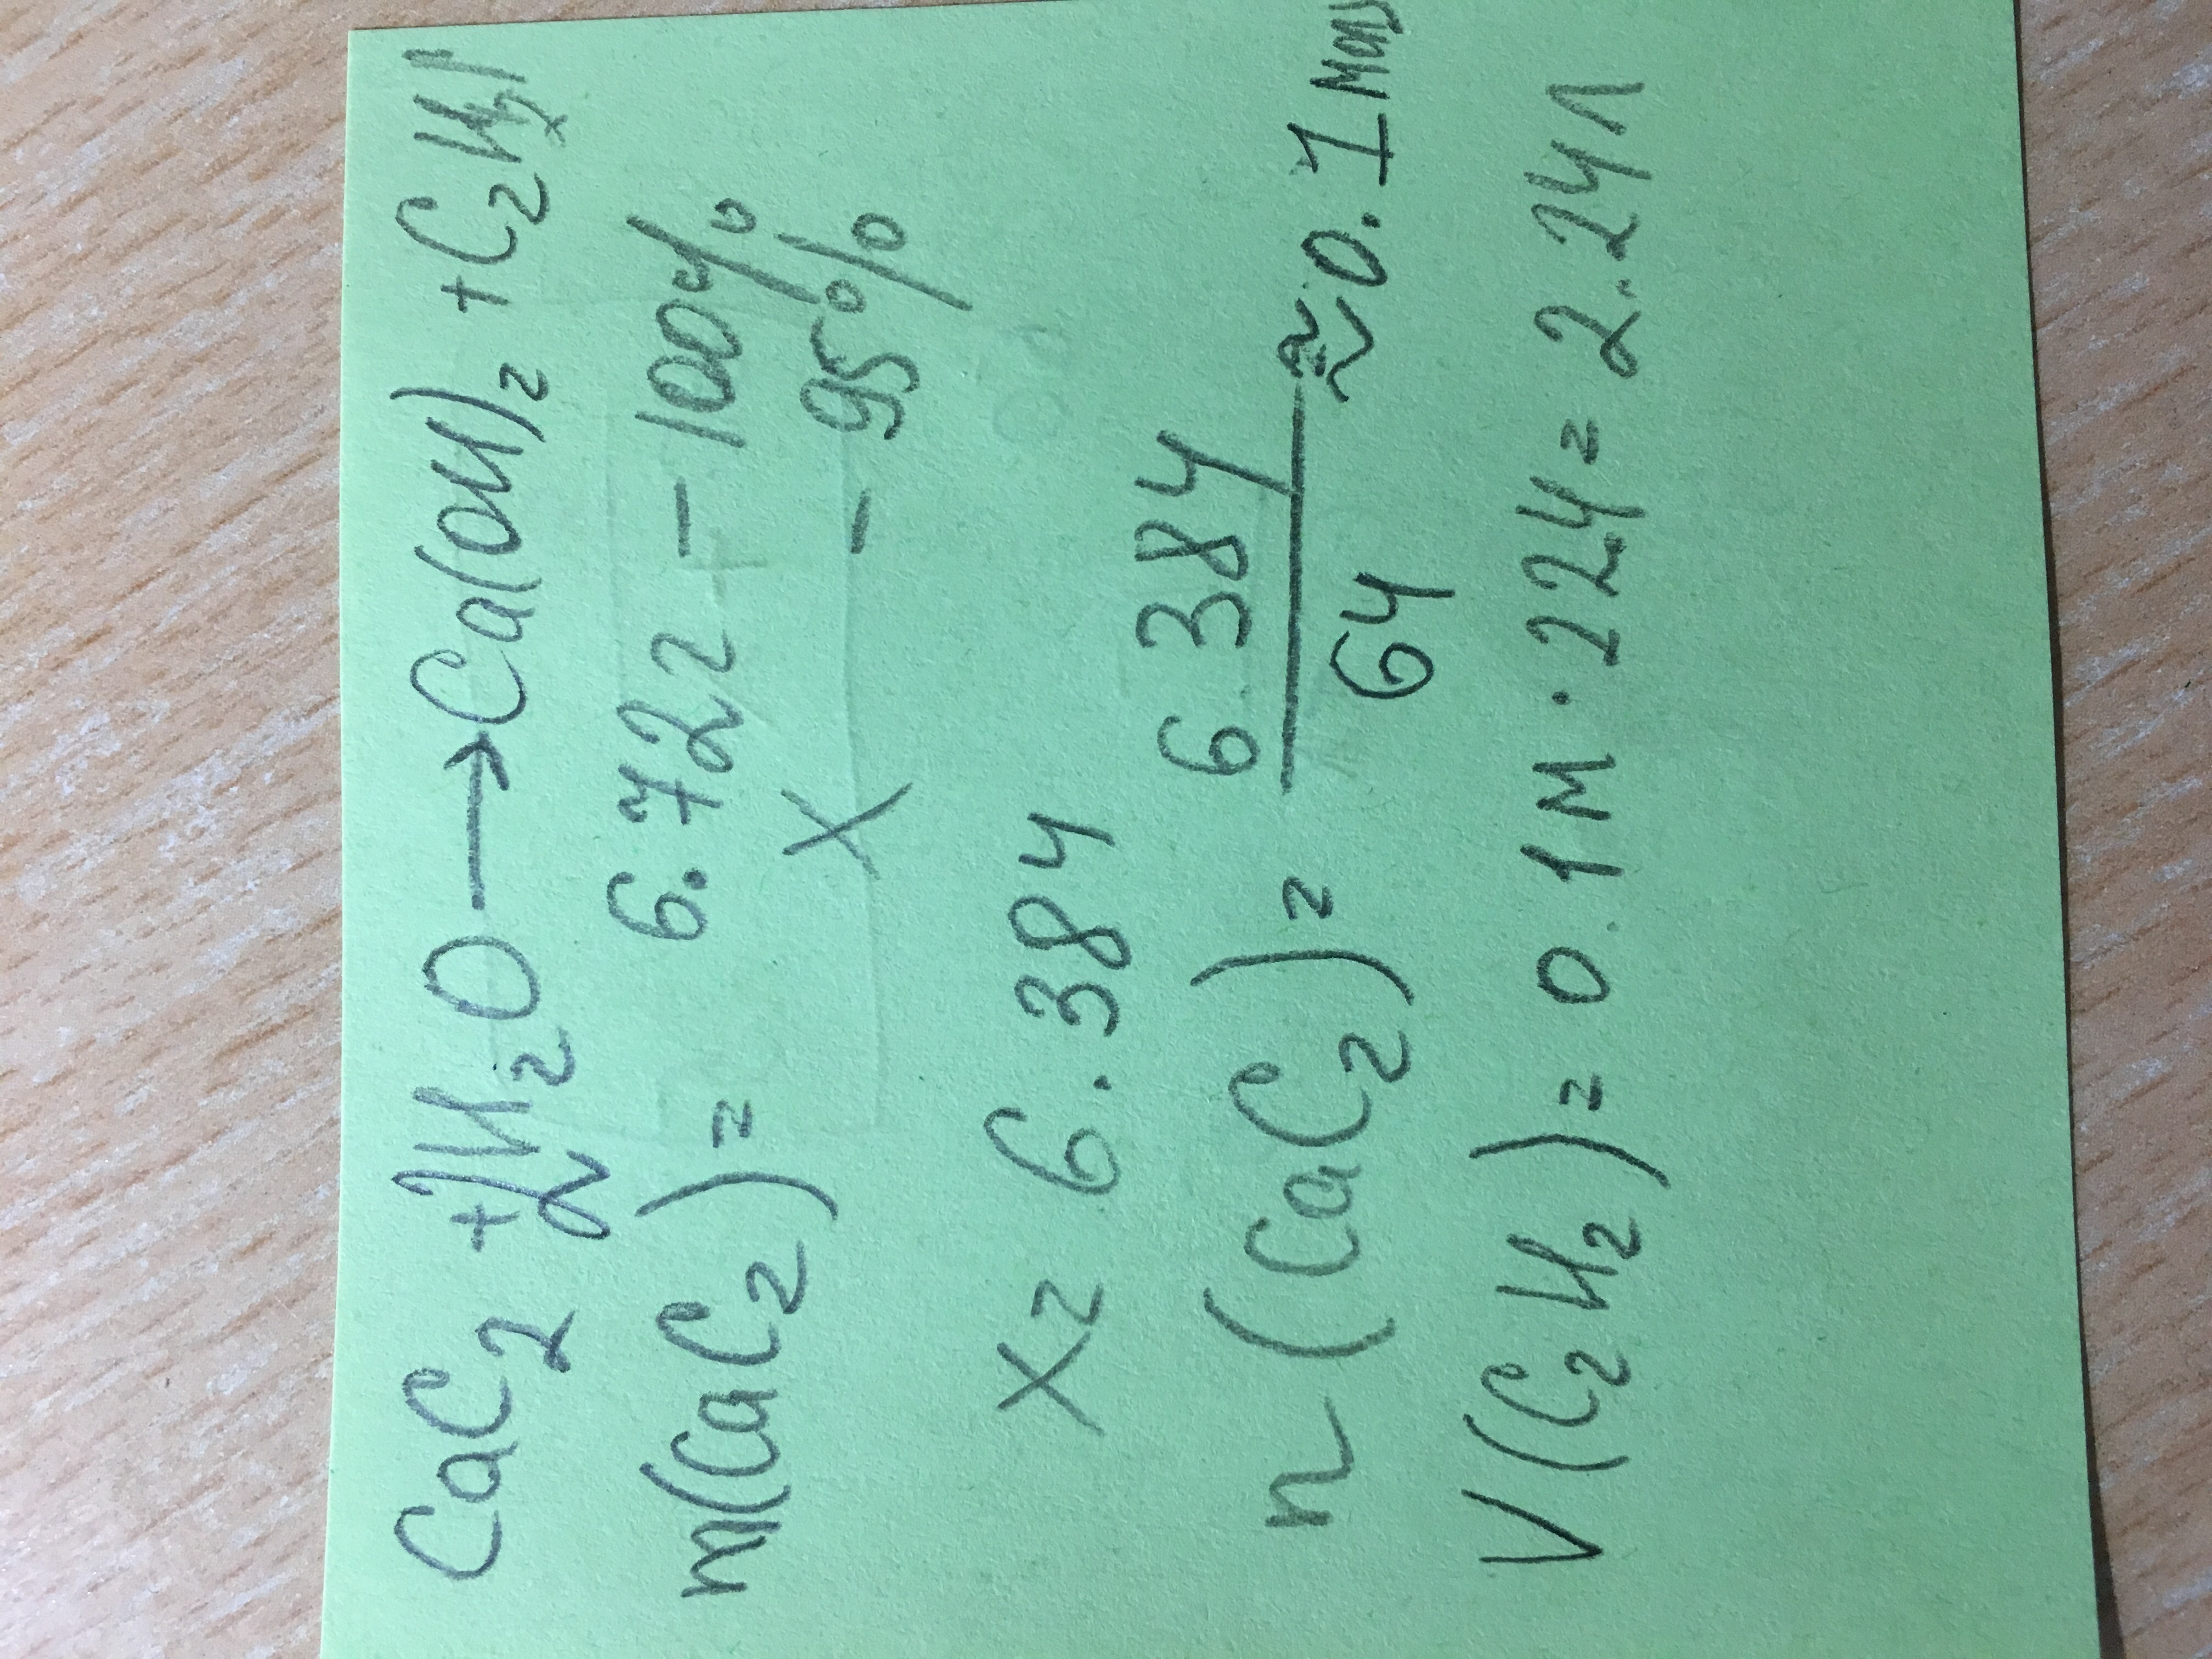 CaC₂ + 2H₂O → Ca(OH)₂ + C₂H₂↑
m(CaC₂) = 6.72г - 100%
X - 95%
X = 6.384
n(CaC₂) = 6.384 / 64 ≈ 0.1 моль
V(C₂H₂) = 0.1м · 22.4 = 2.24л